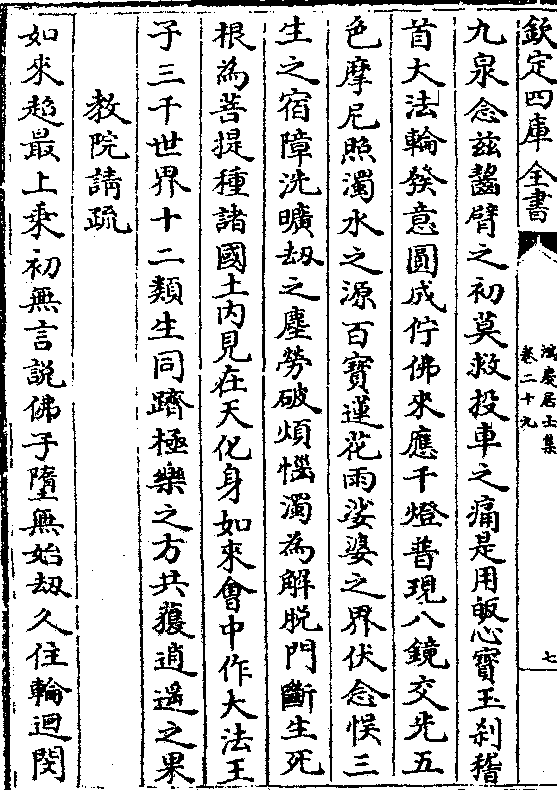 欽定四庫全書
鴻慶居士集
卷二十九
七
九泉念兹齧臂之初莫救投車之痛是用皈心寶玉刹稽
首大法輪發意圓成佇佛來應千燈普現八鏡交光五
色摩尼照濁水之源百寶蓮花雨娑婆之界伏念悮三
生之宿障洗曠刼之塵勞破煩惱濁為解脱門斷生死
根為菩提種諸國土内見在天化身如來會中作大法王
子三千世界十二類生同躋極樂之方共蔭逍遥之果
教院請疏
如來超最上乘初無言說佛子墮無始刼久住輪迴閔